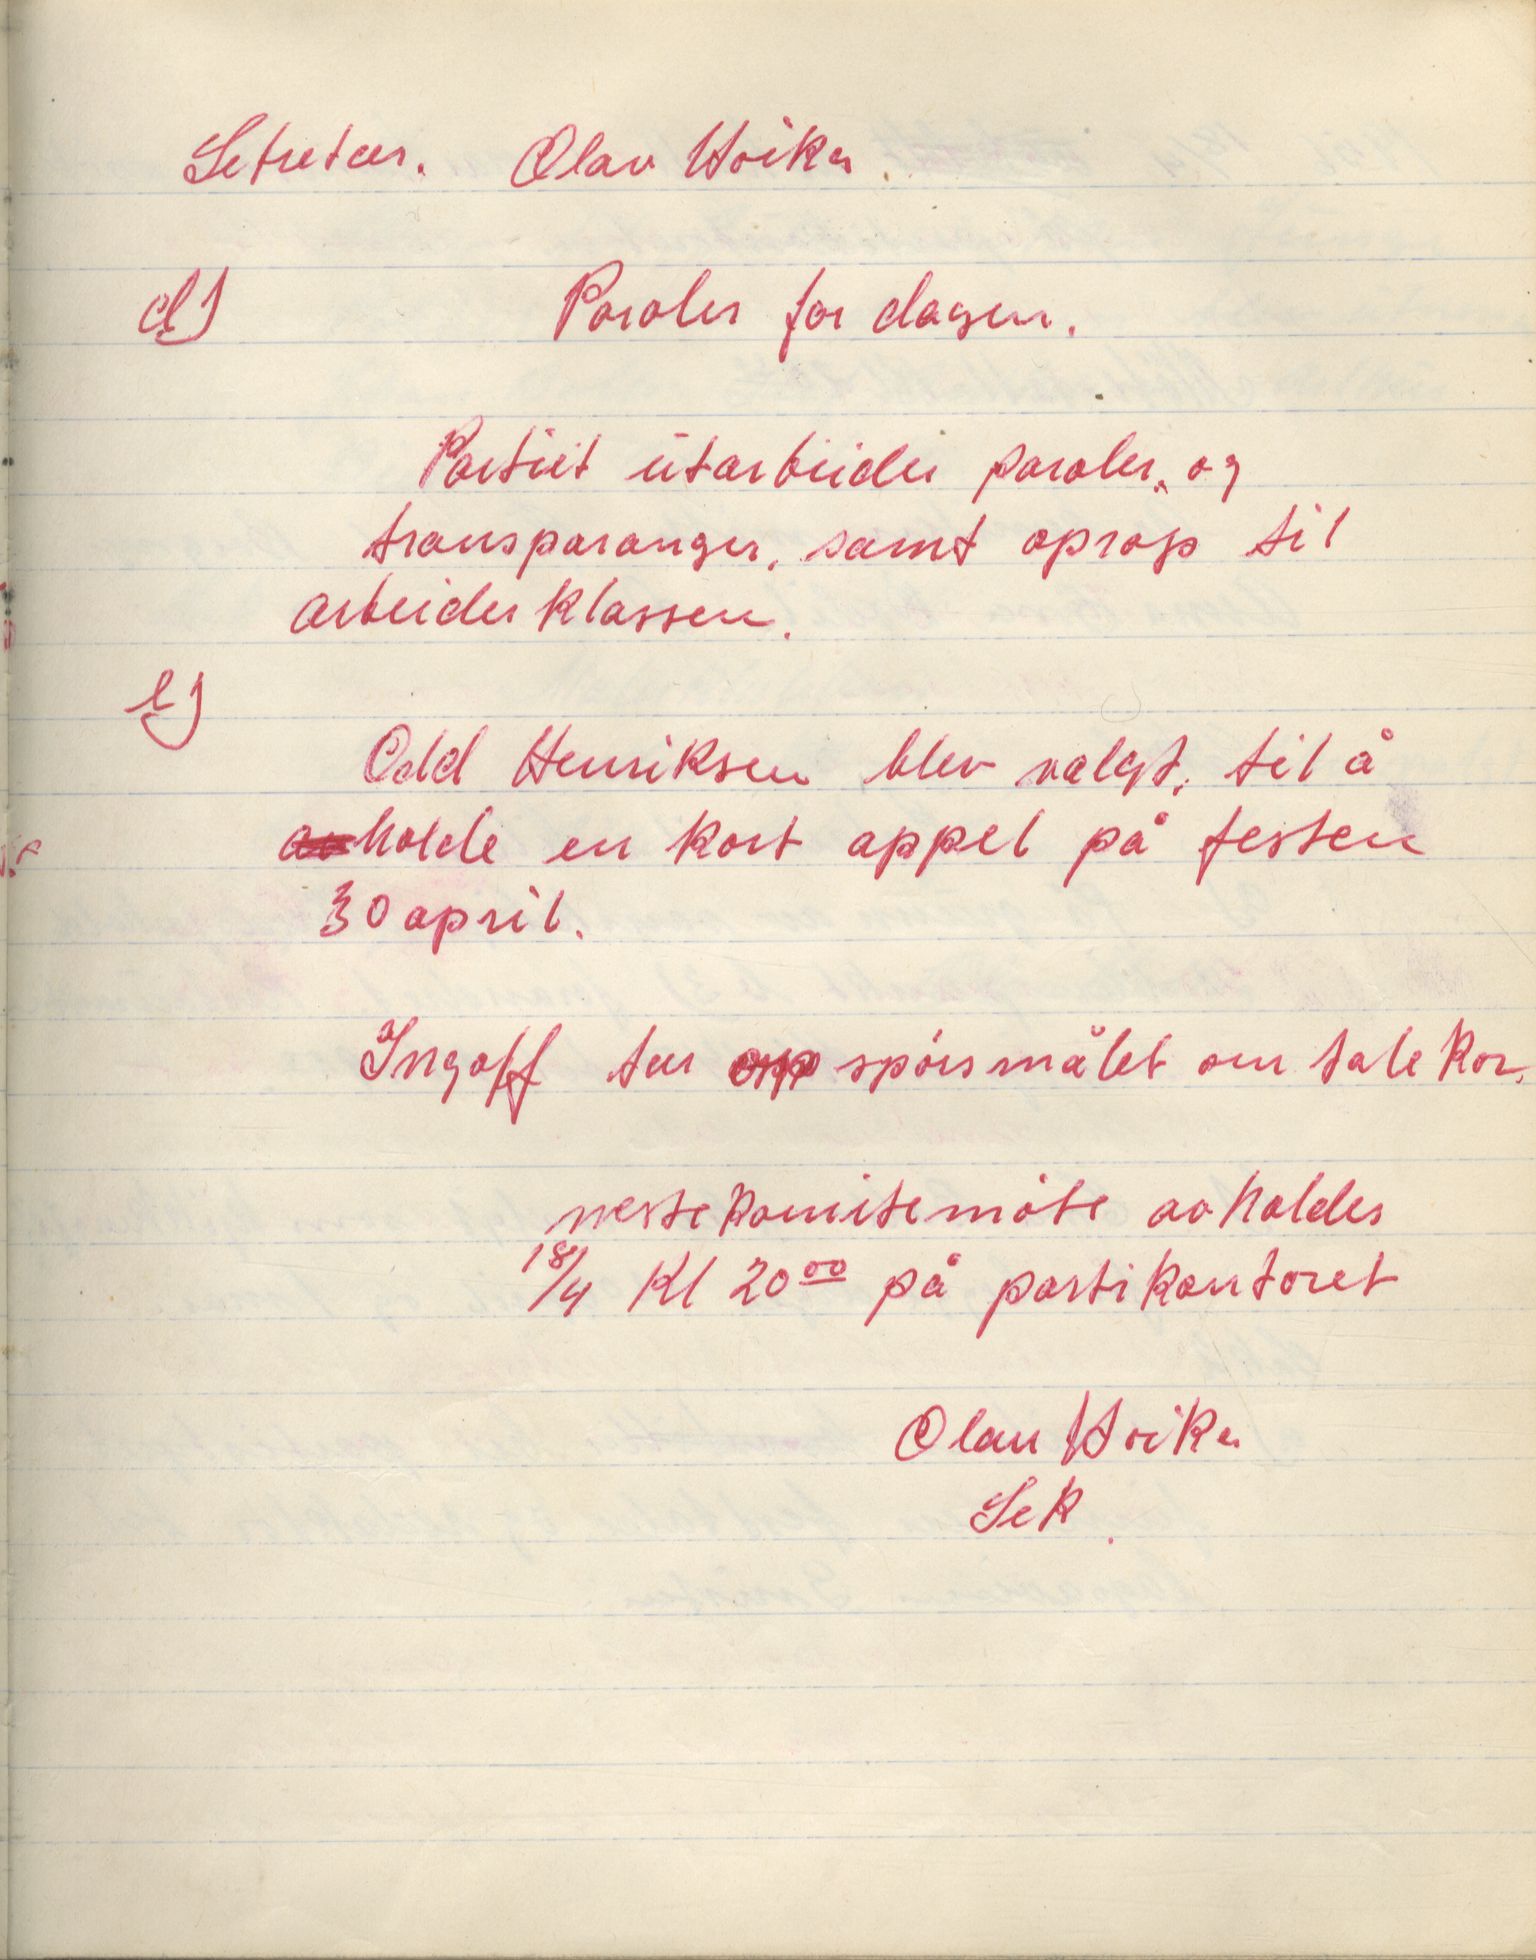 Sekretær. Olav Hoika
d) Paroler for dagen.
Partiet utarbeider paroler, og
transparanger, samt oprop til
arbeiderklassen.
e)
Odd Henriksen blev valgt, til å
holde en kort appel på festen
30 april.
Ingolf tar opp spörsmålet om talekor.
neste komitemöte avholdes
18/4 Kl 20 00 på partikontoret
Olav Hoika
Sek.